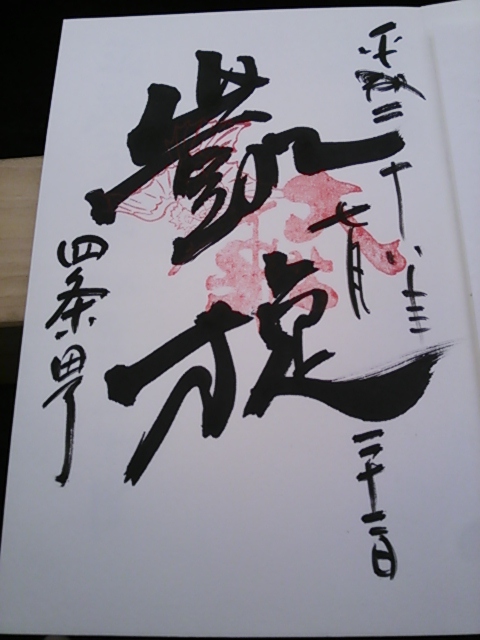 平成二十八年
七月三十一日
凱旋
四条